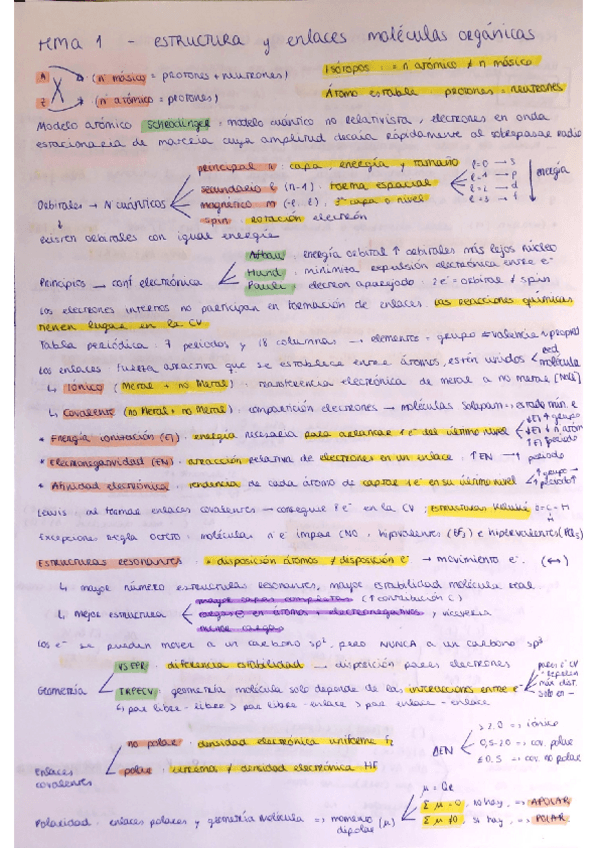 TEMA 1 - ESTRUCTURA y enlaces moléculas orgánicas
A (nº másico = protones + neutrones) Isótopos: = n atómico ≠ n másico
Z (nº atómico = protones) Átomo estable: protones = neutrones
Modelo atómico Schrödinger: modelo cuántico no relativista, electrones en onda
estacionaria de materia cuya amplitud decaía rápidamente al sobrepasar radio
principal n: capa, energía y tamaño l=0 → s
secundario l (n-1): forma espacial l=1 → p energía
Orbitales → N cuánticos magnético m (-l, l): capa o nivel
spin: rotación electrón
existen orbitales con igual energía
energía orbital ↑ orbitales más lejos núcleo
Principios → conf electrónica Hund: minimiza electrónica entre e-
Pauli: electrón aparejado: 2e- = orbital ≠ spin
Los electrones internos no participan en formación de enlaces. Las reacciones químicas
tienen lugar en la CV
Tabla periódica: 7 periodos y 18 columnas → elementos = grupo = valencia
Los enlaces fuerza atractiva que se establece entre átomos, están unidos red molécula
↳ Iónico (Metal + no Metal): transferencia electrónica de metal a no metal
↳ Covalente (no Metal + no Metal): compartición electrones → moléculas solapam → estado mín. e
* Energía ionización (EI): energía necesaria para arrancar 1 e- del último nivel
* Electronegatividad (EN): atracción relativa de electrones en un enlace. ↑EN → periodo
* Afinidad electrónica: tendencia de cada átomo de captar 1 e- en su último nivel ↑grupo periodo↑
Lewis: al formar enlaces covalentes → conseguir 8 e- en la CV; estructuras Kekulé
Excepciones regla octeto: moléculas nº e- impar (NO, hipovalentes (BF3) e hipervalentes (PCl5)
Estructuras resonantes: = disposición átomos ≠ disposición e- → movimiento e-. (↔)
↳ mayor número estructuras resonantes, mayor estabilidad molécula real
mayor capas completas (↑ contribución C)
↳ Mejor estructura cargas ⊖ en átomos + electronegativos, y viceversa
menor cargas
Los e- se pueden mover a un carbono sp², pero NUNCA a un carbono sp³
VSEPR: diferencia estabilidad → disposición pares electrones
Geometría TRPECV: geometría molécula solo depende de las interacciones entre e- pares e- CV
↳ par libre-libre > par libre-enlace > par enlace-enlace
no polar: densidad electrónica uniforme F2 > 2.0 => iónico
ΔEN 0,5-2.0 => cov. polar
Enlaces covalentes polar: extrema ≠ densidad electrónica HF ≤ 0.5 => cov. no polar
Polaridad: enlaces polares y geometría molécula => momento dipolar (μ) Σμ = 0, no hay, => APOLAR
Σμ ≠ 0, si hay, => POLAR